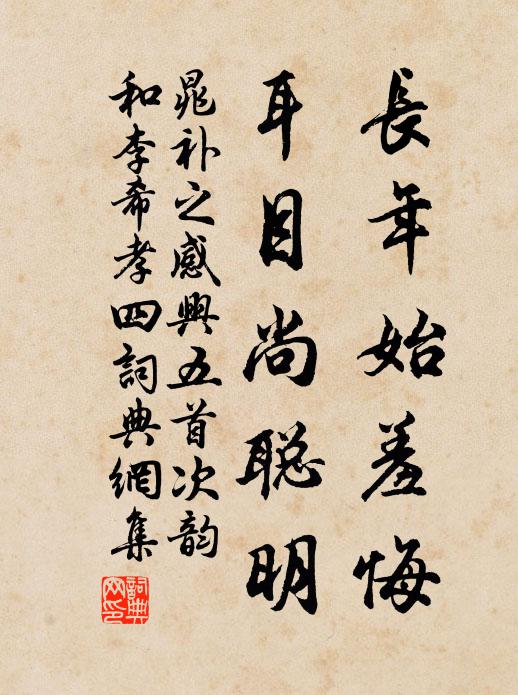 長年始羞悔
耳目尚聡明
晁补之感興五首次韵
和李希孝四詞典網集
詞典
网印